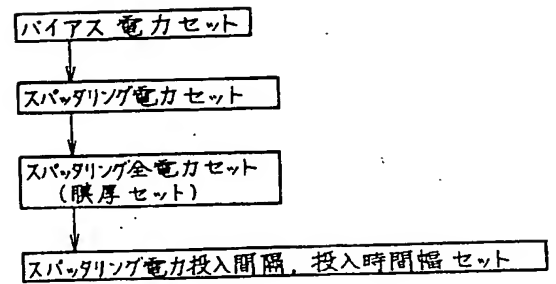 バイアス電力セット
スパッタリング電力セット
スパッタリング全電力セット
(膜厚セット)
スパッタリング電力投入間隔, 投入時間幅セット